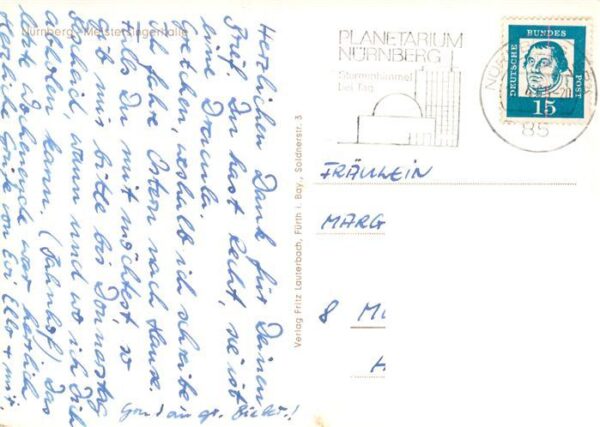 Nürnberg - Meistersingerhalle
Herzlichen Dank für Deinen
Brief. Du hast Recht, sie ist
eine Dracula.
Gretchen, weshalb ich schreibe
Ich fahre Ostern nach Hause.
Falls Du mit möchtest, so
gib mir bitte bis Donnerstag
Bescheid, wann und wo ich Dich
abholen kann. (Bahnhof) Das
letzte Wochenende war
Herzliche Grüße von Evi Ella +
Verlag Fritz Lauterbach, Fürth i. Bay., Soldnerstr. 3
PLANETARIUM
NÜRNBERG
Sternenhimmel
bei Tag
DEUTSCHE
BUNDES
POST
15
85
FRÄULEIN
MARG
8 M